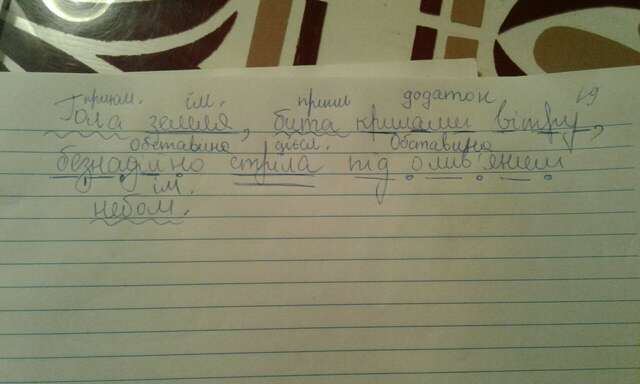 прикм. ім. прикм додаток
Гола земля, бита крилами вітру,
обставина дієсл. Обставина
безнадійно сіріла під олив'яним
ім.
небом.